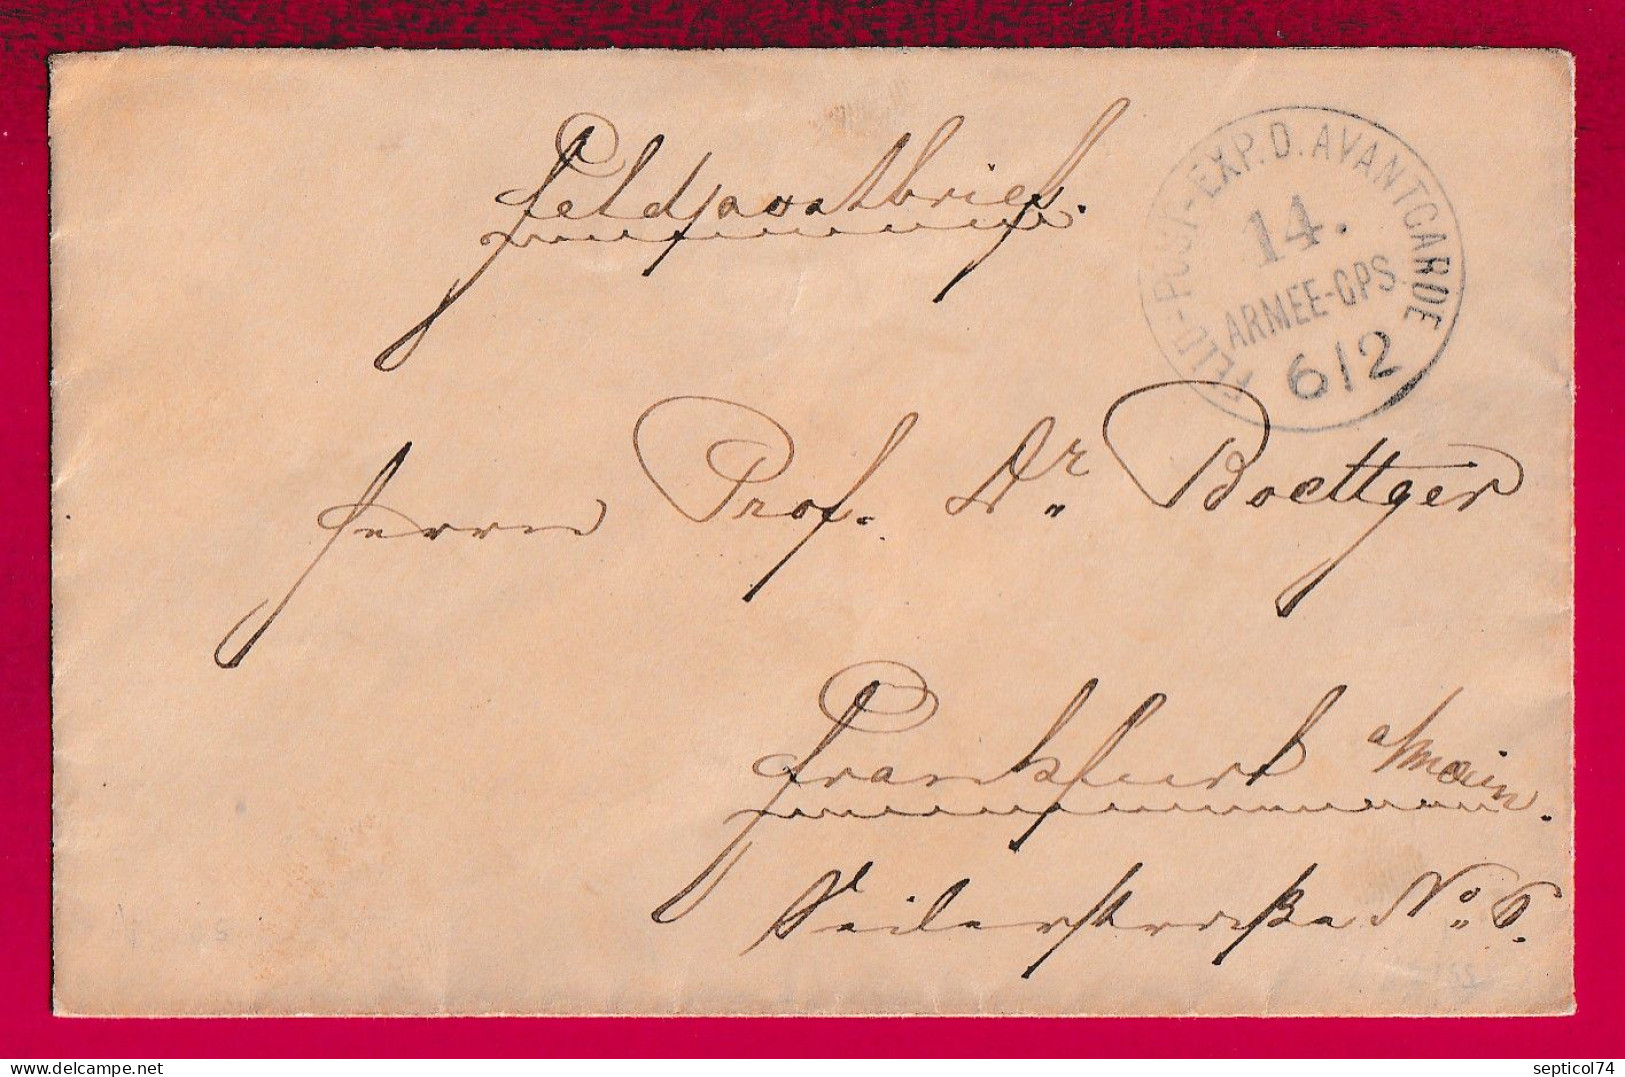 Feldpostbrief.
FELD-POST-EXP. D. AVANTGARDE
14.
ARMEE-CPS.
6/2
Herrn Prof. Dr. Boettger
Frankfurt a/Main.
Seilerstraße No. 6.
septicol74